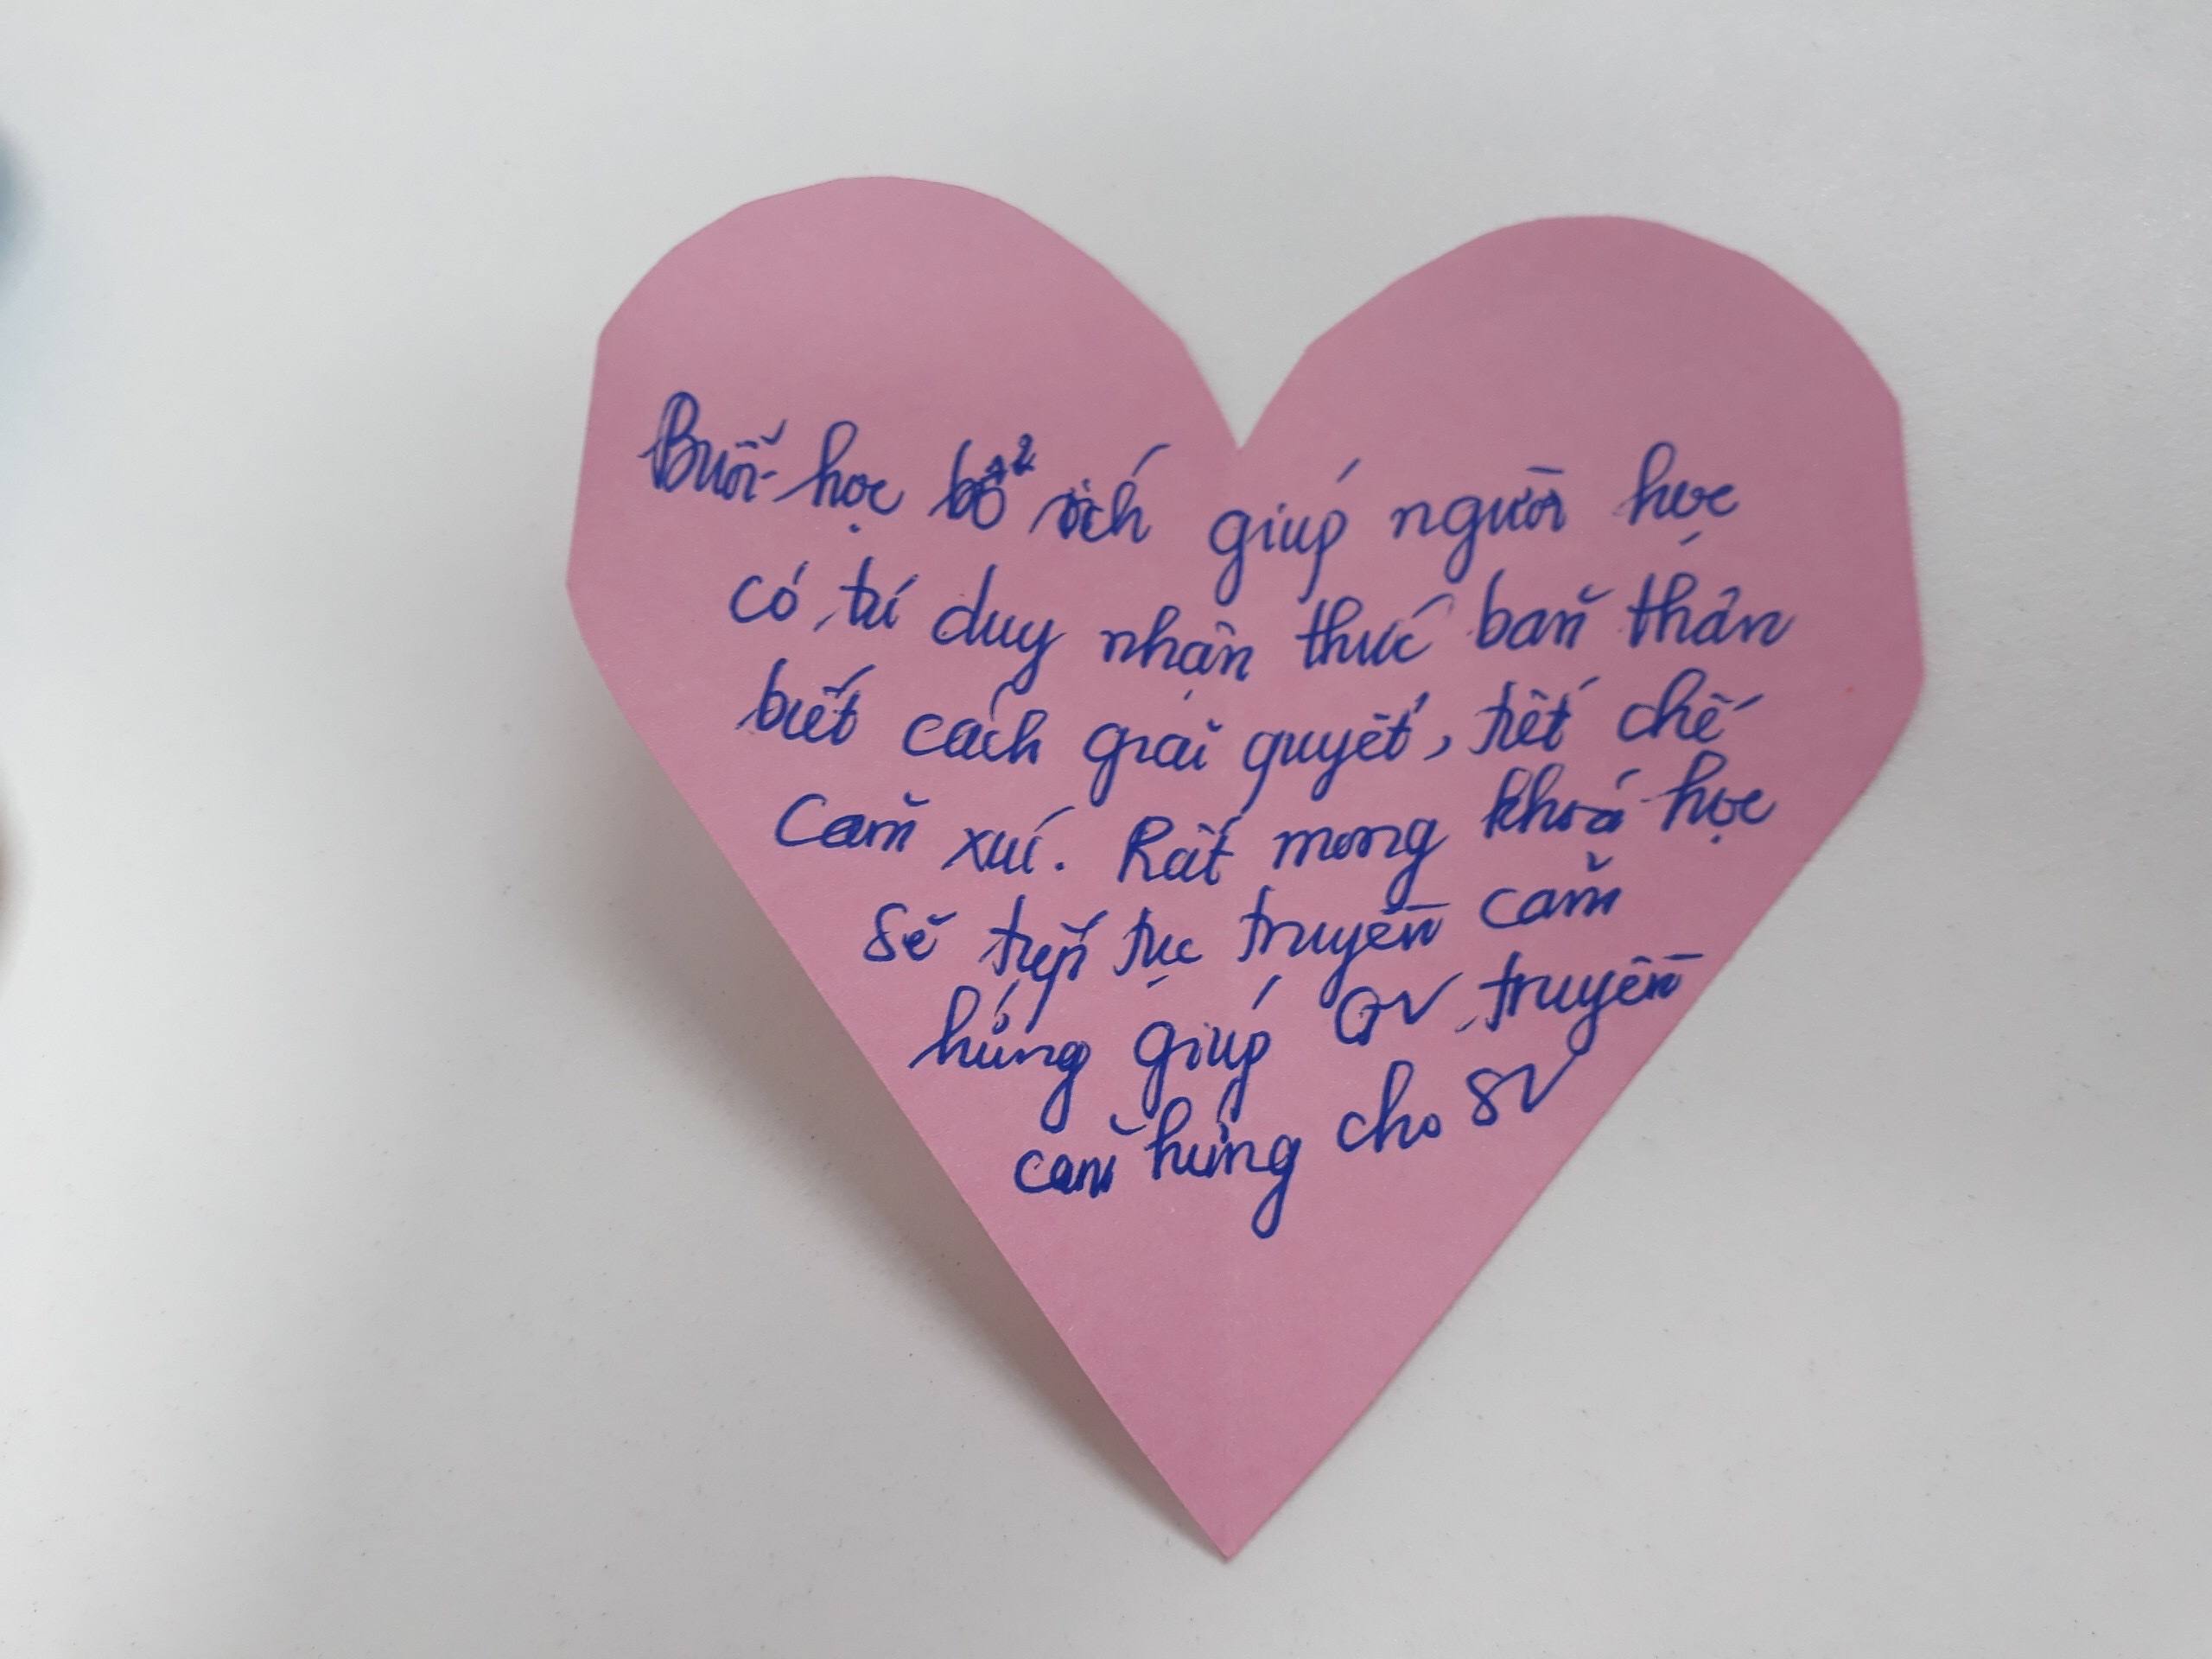 Buổi học bổ ích giúp người học
có tư duy nhận thức bản thân
biết cách giải quyết, tiết chế
Cảm xúc. Rất mong khoá học
sẽ tiếp tục truyền cảm
hứng giúp GV truyền
cảm hứng cho SV